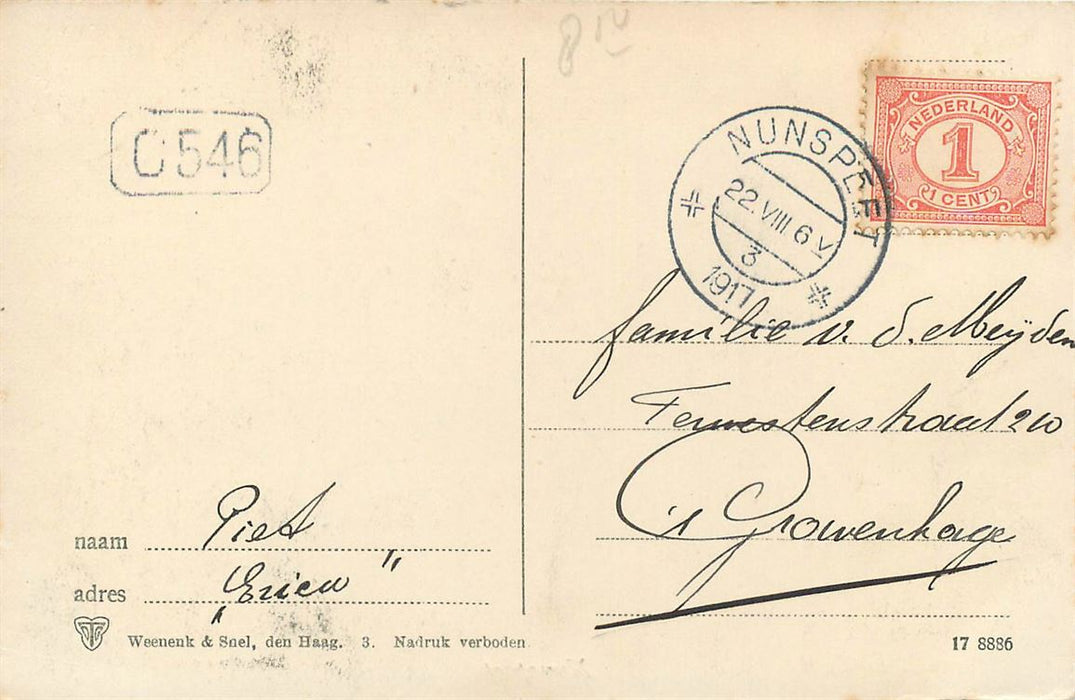 C 546
NEDERLAND
1
1 CENT
NUNSPEET
22.VIII 6 V
3
1917
familie v. d. Meijden
straat 20
's Gravenhage
naam Piet
adres „Erica"
Weenenk & Snel, den Haag. 3. Nadruk verboden
17 8886